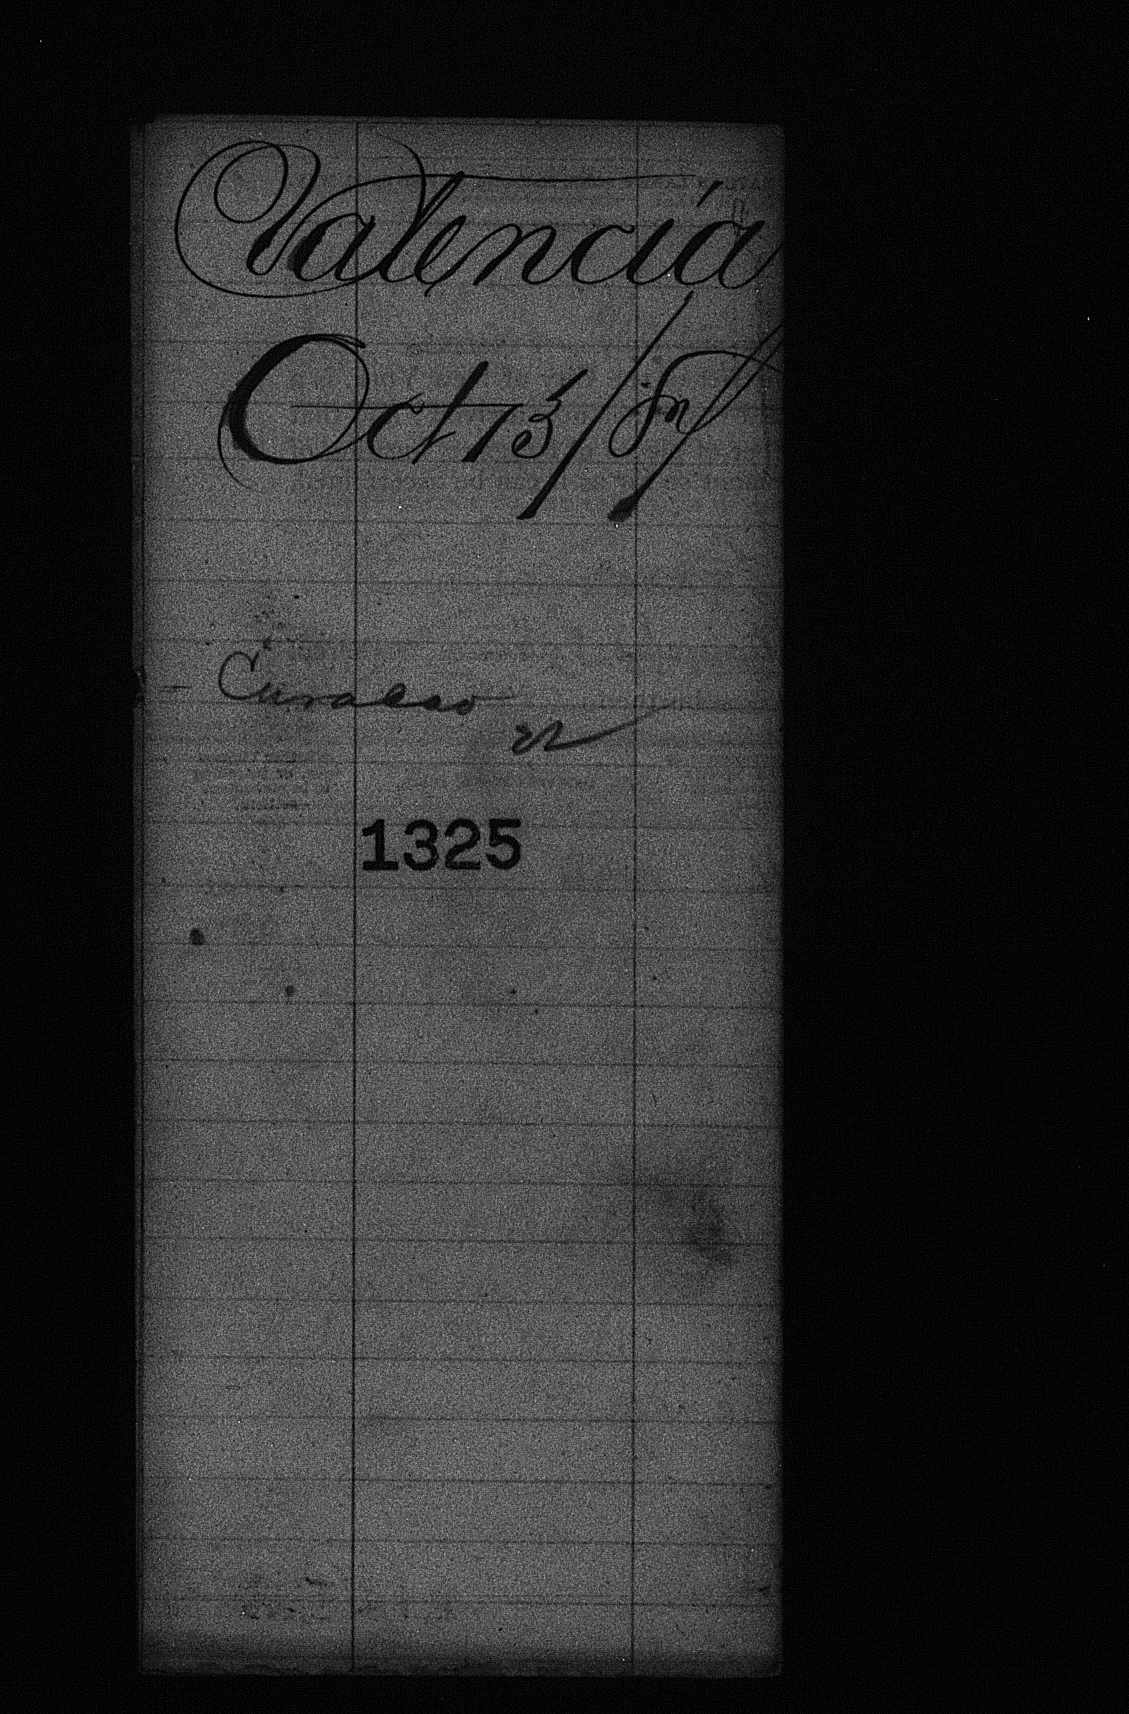 Valencia
Oct 13/87
Curacao
1325